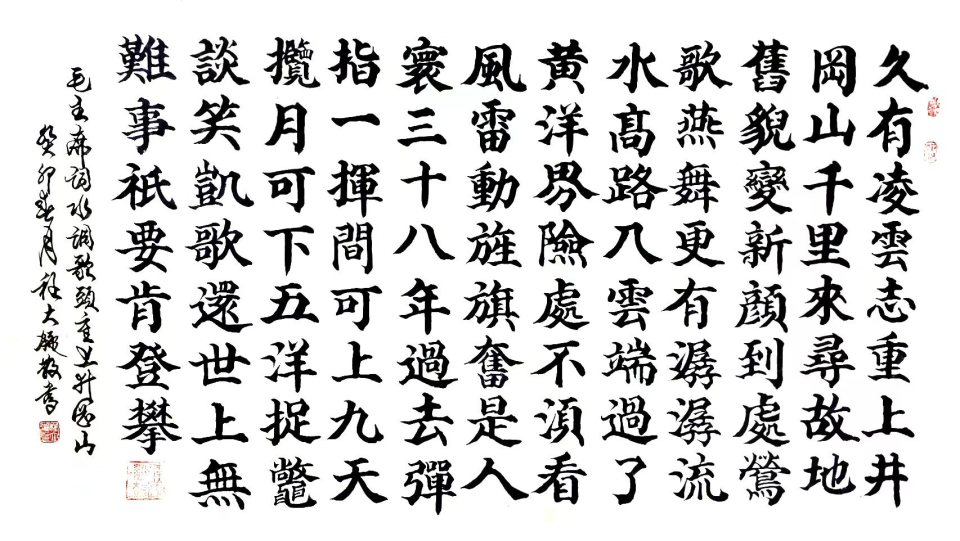 久有凌雲志重上井
岡山千里來尋故地
舊貌變新顏到處鶯
歌燕舞更有潺潺流
水髙路入雲端過了
黄洋界險處不湏看
風雷動旌旗奮是人
寰三十八年過去彈
指一揮間可上九天
攬月可下五洋捉鼈
談笑凱歌還世上無
難事祇要肯登攀
毛主席词水调歌頭重上井岡山
癸卯春月大敬書